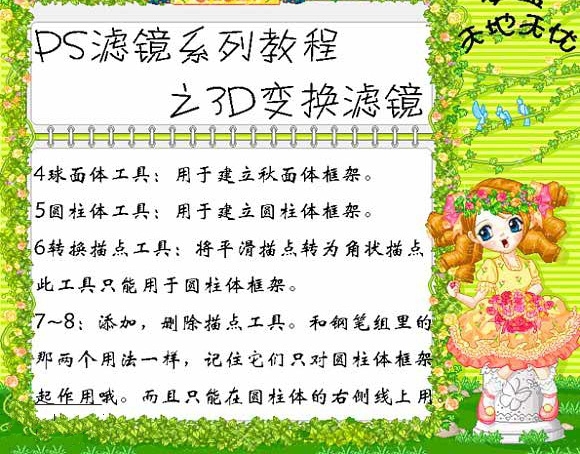 天地无忧
PS滤镜系列教程
之3D变换滤镜
4球面体工具：用于建立秋面体框架。
5圆柱体工具：用于建立圆柱体框架。
6转换描点工具：将平滑描点转为角状描点
此工具只能用于圆柱体框架。
7~8：添加，删除描点工具。和钢笔组里的
那两个用法一样，记住它们只对圆柱体框架
起作用哦。而且只能在圆柱体的右侧线上用